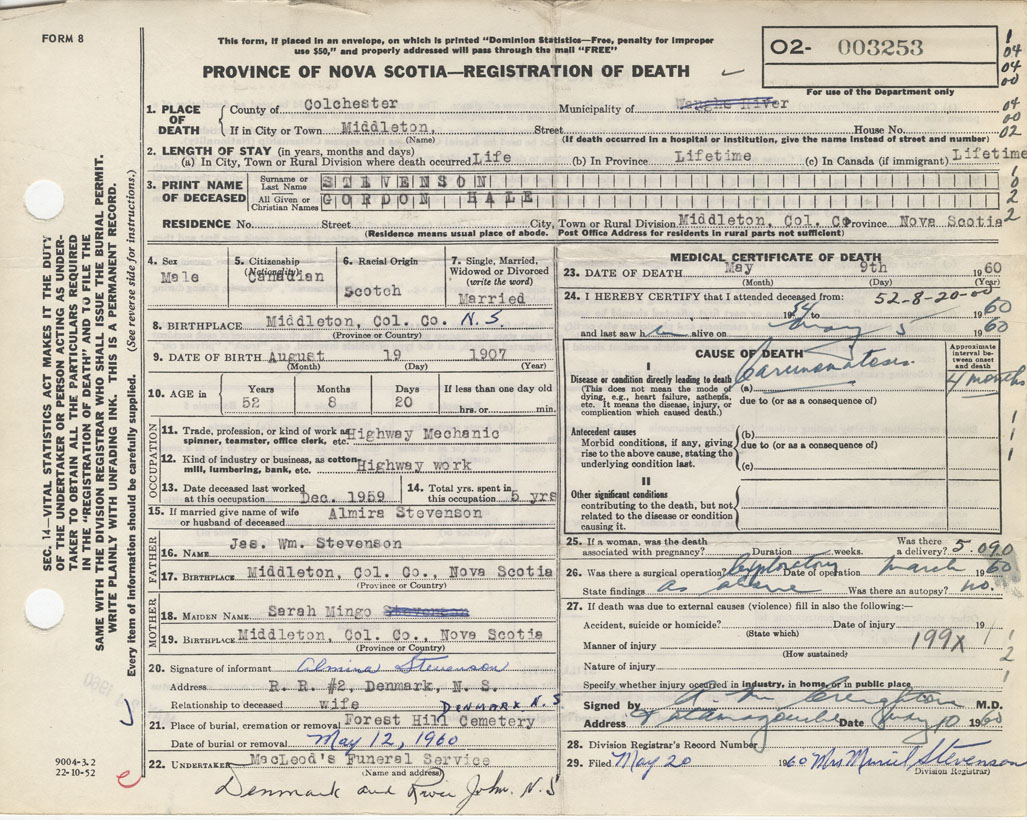 FORM 8
This form, if placed in an envelope, on which is printed "Dominion Statistics—Free, penalty for improper
use $50," and properly addressed will pass through the mail "FREE"
PROVINCE OF NOVA SCOTIA—REGISTRATION OF DEATH
O2- 003253
For use of the Department only
1 04 04 00
04 00 02
1. PLACE OF DEATH
County of Colchester Municipality of
If in City or Town Middleton, Street House No.
(Name) (If death occurred in a hospital or institution, give the name instead of street and number)
2. LENGTH OF STAY (in years, months and days)
(a) In City, Town or Rural Division where death occurred Life (b) In Province Lifetime (c) In Canada (if immigrant) Lifetime
3. PRINT NAME OF DECEASED
Surname or Last Name STEVENSON
All Given or Christian Names GORDON HALE
RESIDENCE No. Street City, Town or Rural Division Middleton, Col. Co Province Nova Scotia
(Residence means usual place of abode. Post Office Address for residents in rural parts not sufficient)
4. Sex Male
5. Citizenship (Nationality) Canadian
6. Racial Origin Scotch
7. Single, Married, Widowed or Divorced (write the word) Married
8. BIRTHPLACE Middleton, Col. Co. N.S.
(Province or Country)
9. DATE OF BIRTH August 19 1907
(Month) (Day) (Year)
10. AGE in Years 52 Months 8 Days 20 If less than one day old hrs. or min.
OCCUPATION
11. Trade, profession, or kind of work as spinner, teamster, office clerk, etc. Highway Mechanic
12. Kind of industry or business, as cotton mill, lumbering, bank, etc. Highway work
13. Date deceased last worked at this occupation Dec. 1959
14. Total yrs. spent in this occupation 5 yrs
15. If married give name of wife or husband of deceased Almira Stevenson
FATHER
16. NAME Jas. Wm. Stevenson
17. BIRTHPLACE Middleton, Col. Co., Nova Scotia
(Province or Country)
MOTHER
18. MAIDEN NAME Sarah Mingo Stevenson
19. BIRTHPLACE Middleton, Col. Co., Nova Scotia
(Province or Country)
20. Signature of informant Almira Stevenson
Address R. R. #2, Denmark, N. S.
Relationship to deceased wife DENMARK N.S
21. Place of burial, cremation or removal Forest Hill Cemetery
Date of burial or removal May 12, 1960
22. UNDERTAKER MacLeod's Funeral Service
(Name and address)
Denmark and River John. N.S
MEDICAL CERTIFICATE OF DEATH
23. DATE OF DEATH May 9th 1960
(Month) (Day) (Year)
24. I HEREBY CERTIFY that I attended deceased from: 52-8-20-00
19 to 1960
and last saw h alive on May 5 1960
CAUSE OF DEATH
Approximate interval between onset and death
I
Disease or condition directly leading to death
(This does not mean the mode of dying, e.g., heart failure, asthenia, etc. It means the disease, injury, or complication which caused death.)
(a) Carcinomatosis 4 months
due to (or as a consequence of)
Antecedent causes
Morbid conditions, if any, giving rise to the above cause, stating the underlying condition last.
(b)
due to (or as a consequence of)
(c)
II
Other significant conditions
contributing to the death, but not related to the disease or condition causing it.
25. If a woman, was the death associated with pregnancy? Duration weeks. Was there a delivery? 5.090
26. Was there a surgical operation? Exploratory Date of operation March 1960
State findings as above Was there an autopsy? no.
27. If death was due to external causes (violence) fill in also the following:—
Accident, suicide or homicide? Date of injury 19
(State which)
Manner of injury 199X
(How sustained)
Nature of injury
Specify whether injury occurred in industry, in home, or in public place
Signed by Creighton M.D.
Address Tatamagouche Date May 10 1960
28. Division Registrar's Record Number
29. Filed May 20 1960 Mrs Muriel Stevenson
(Division Registrar)
SEC. 14—VITAL STATISTICS ACT MAKES IT THE DUTY
OF THE UNDERTAKER OR PERSON ACTING AS UNDER-
TAKER TO OBTAIN ALL THE PARTICULARS REQUIRED
IN THE "REGISTRATION OF DEATH" AND TO FILE THE
SAME WITH THE DIVISION REGISTRAR WHO SHALL ISSUE THE BURIAL PERMIT.
WRITE PLAINLY WITH UNFADING INK. THIS IS A PERMANENT RECORD.
Every item of information should be carefully supplied. (See reverse side for instructions.)
9004-3.2
22-10-52